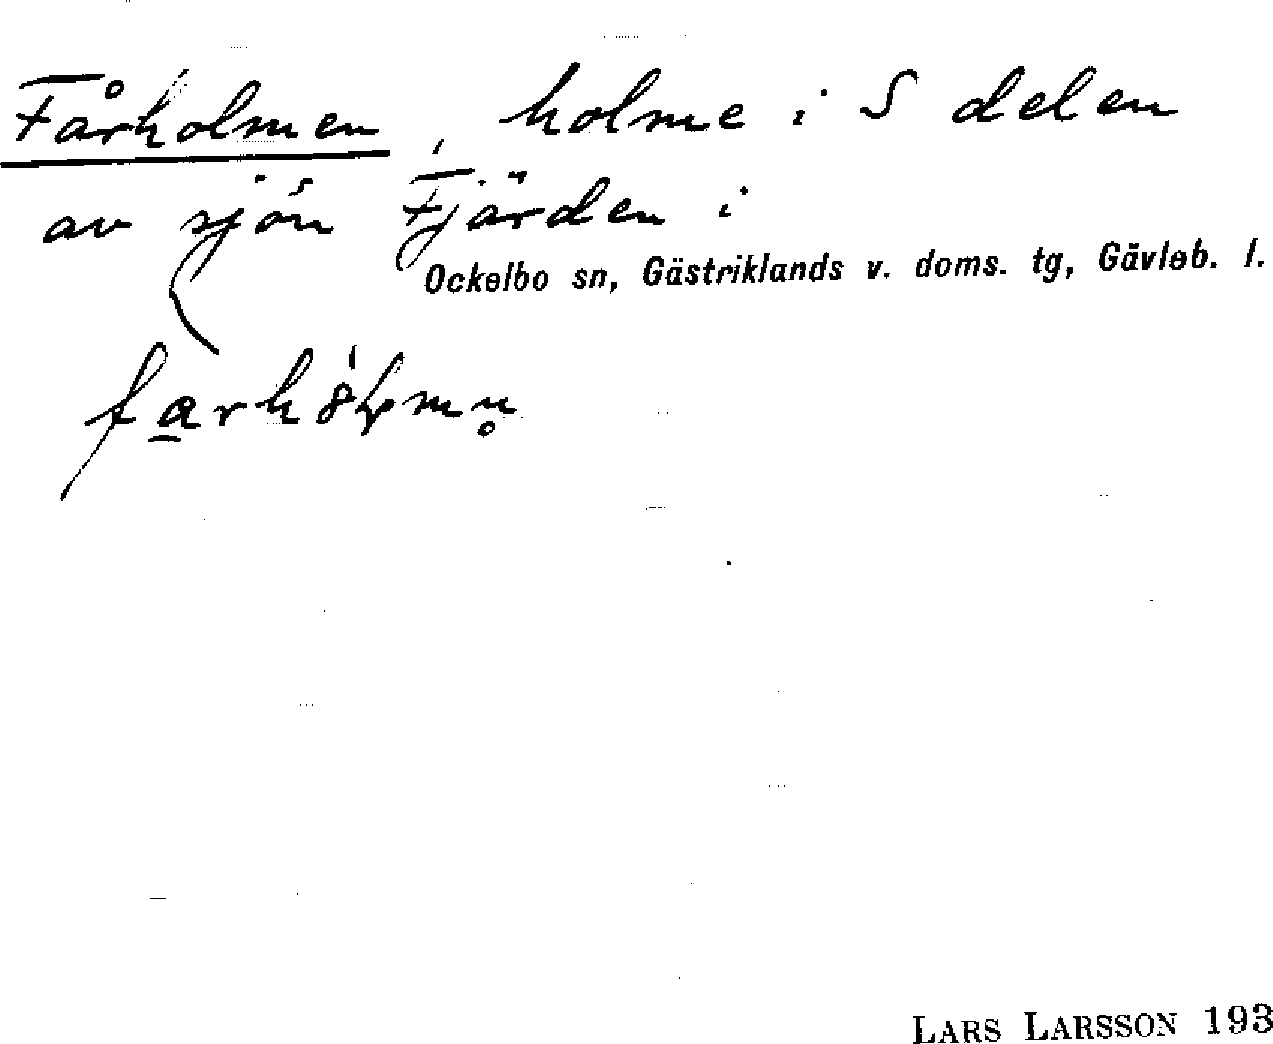 Fårholmen, holme i S delen
av sjön Fjärden i
Ockelbo sn, Gästriklands v. doms. tg, Gävleb. l.
LARS LARSSON 193